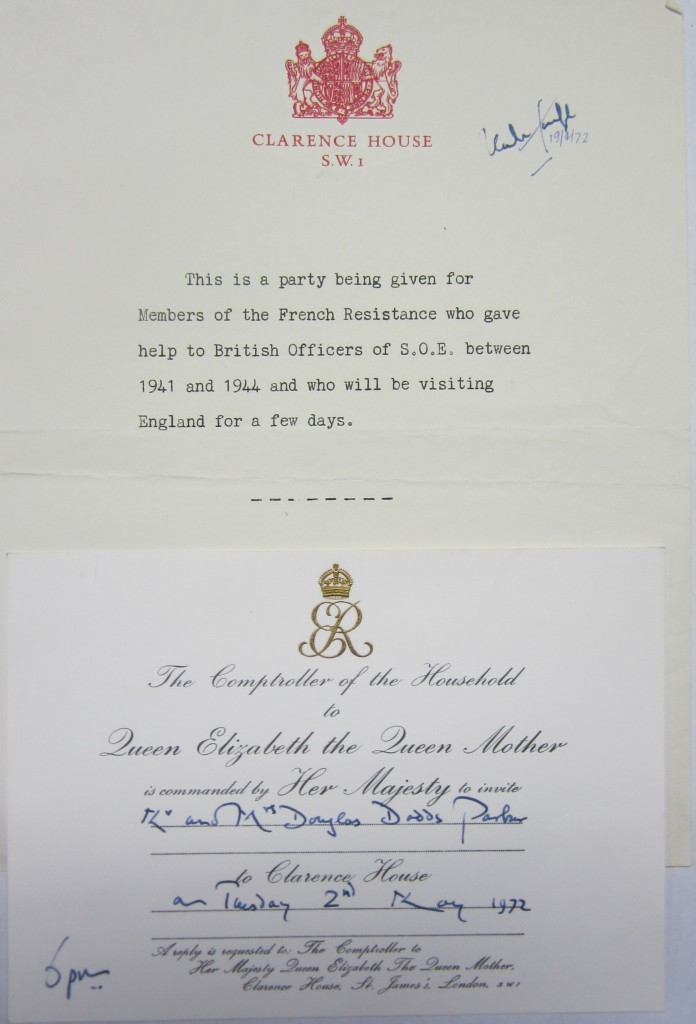 CLARENCE HOUSE
S.W. 1
19/4/72
This is a party being given for
Members of the French Resistance who gave
help to British Officers of S.O.E. between
1941 and 1944 and who will be visiting
England for a few days.
ER
The Comptroller of the Household
to
Queen Elizabeth the Queen Mother
is commanded by Her Majesty to invite
Mr and Mrs Douglas Dodds Parker
to Clarence House
on Tuesday 2nd May 1972
A reply is requested to: The Comptroller to
Her Majesty Queen Elizabeth The Queen Mother,
Clarence House, St. James's, London, S.W.1
6 pm